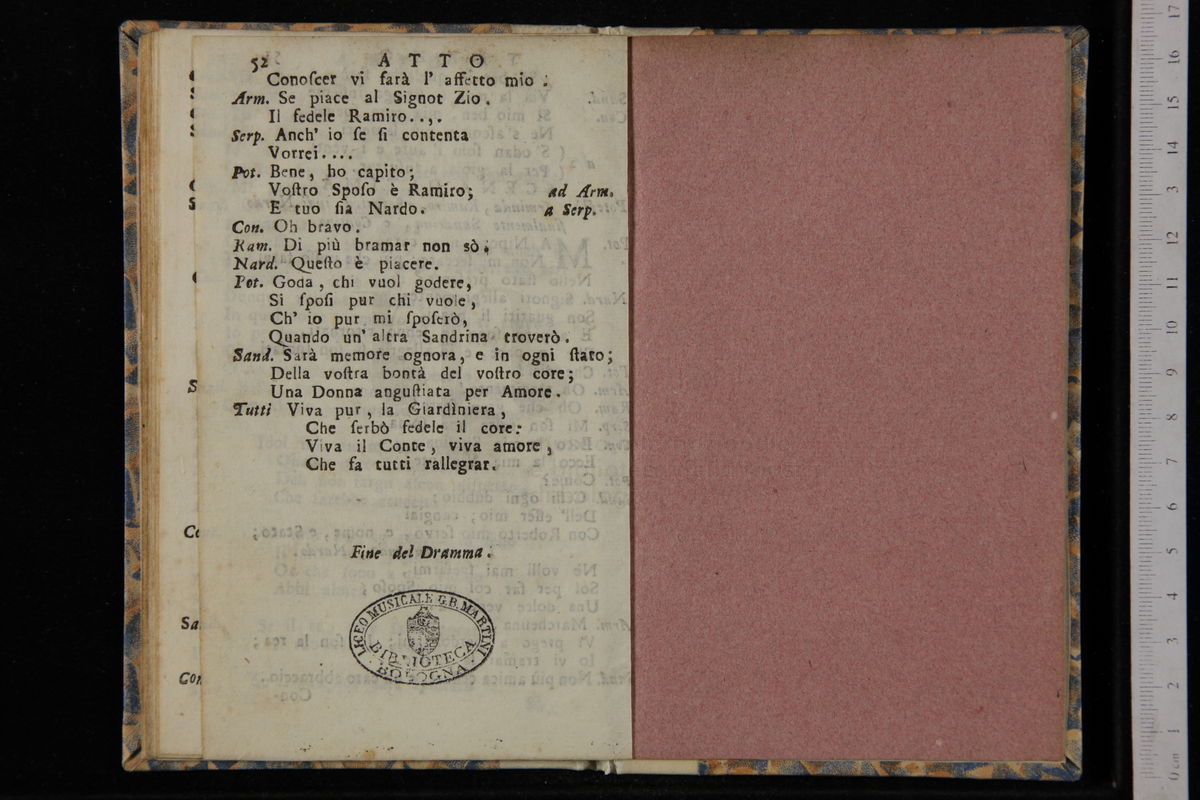 52 ATTO
Conoſcer vi farà l' affetto mio.
Arm. Se piace al Signot Zio.
Il fedele Ramiro..,.
Serp. Anch' io ſe ſi contenta
Vorrei....
Pot. Bene, ho capito;
Voſtro Spoſo è Ramiro; ad Arm.
E tuo ſia Nardo. a Serp.
Con. Oh bravo.
Ram. Di più bramar non sò.
Nard. Queſto è piacere.
Pot. Goda, chi vuol godere,
Si ſpoſi pur chi vuole,
Ch' io pur mi ſpoſerò,
Quando un' altra Sandrina troverò.
Sand. Sarà memore ognora, e in ogni ſtato;
Della voſtra bontà del voſtro core;
Una Donna anguſtiata per Amore.
Tutti Viva pur, la Giardìniera,
Che ſerbò fedele il core:
Viva il Conte, viva amore,
Che fa tutti rallegrar.
Fine del Dramma.
LICEO MUSICALE G.B. MARTINI
BIBLIOTECA
BOLOGNA